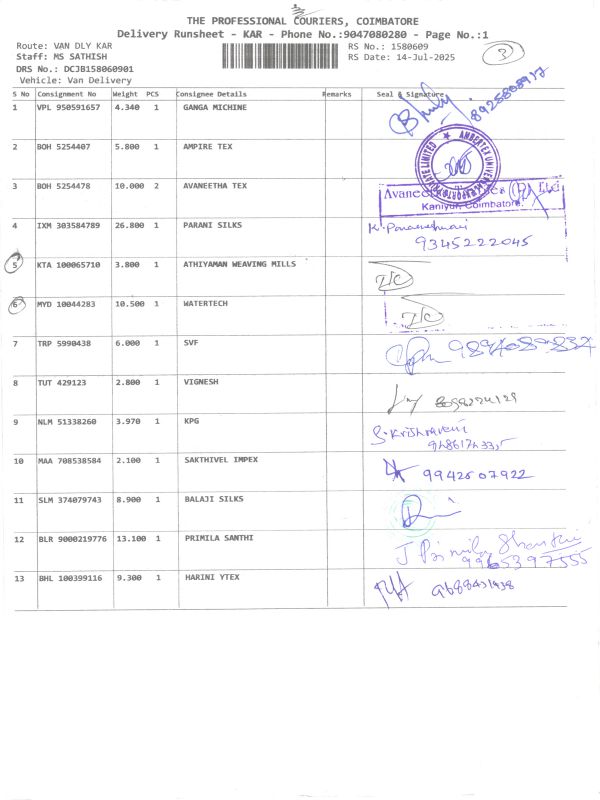 THE PROFESSIONAL COURIERS, COIMBATORE
Delivery Runsheet - KAR - Phone No.:9047080280 - Page No.:1
3
Route: VAN DLY KAR
RS No.: 1580609
Staff: MS SATHISH
RS Date: 14-Jul-2025
DRS No.: DCJB158060901
Vehicle: Van Delivery
S No Consignment No Weight PCS Consignee Details Remarks Seal & Signature
1 VPL 950591657 4.340 1 GANGA MICHINE
2 BOH 5254407 5.800 1 AMPIRE TEX
3 BOH 5254478 10.000 2 AVANEETHA TEX
Kaniyur, Coimbatore.
4 IXM 303584789 26.800 1 PARANI SILKS
9345222045
5 KTA 100065710 3.800 1 ATHIYAMAN WEAVING MILLS
6 MYD 10044283 10.500 1 WATERTECH
7 TRP 5990438 6.000 1 SVF
8 TUT 429123 2.800 1 VIGNESH
9 NLM 51338260 3.970 1 KPG
10 MAA 708538584 2.100 1 SAKTHIVEL IMPEX 9942607922
11 SLM 374079743 8.900 1 BALAJI SILKS
12 BLR 9000219776 13.100 1 PRIMILA SANTHI
9965397555
13 BHL 100399116 9.300 1 HARINI YTEX